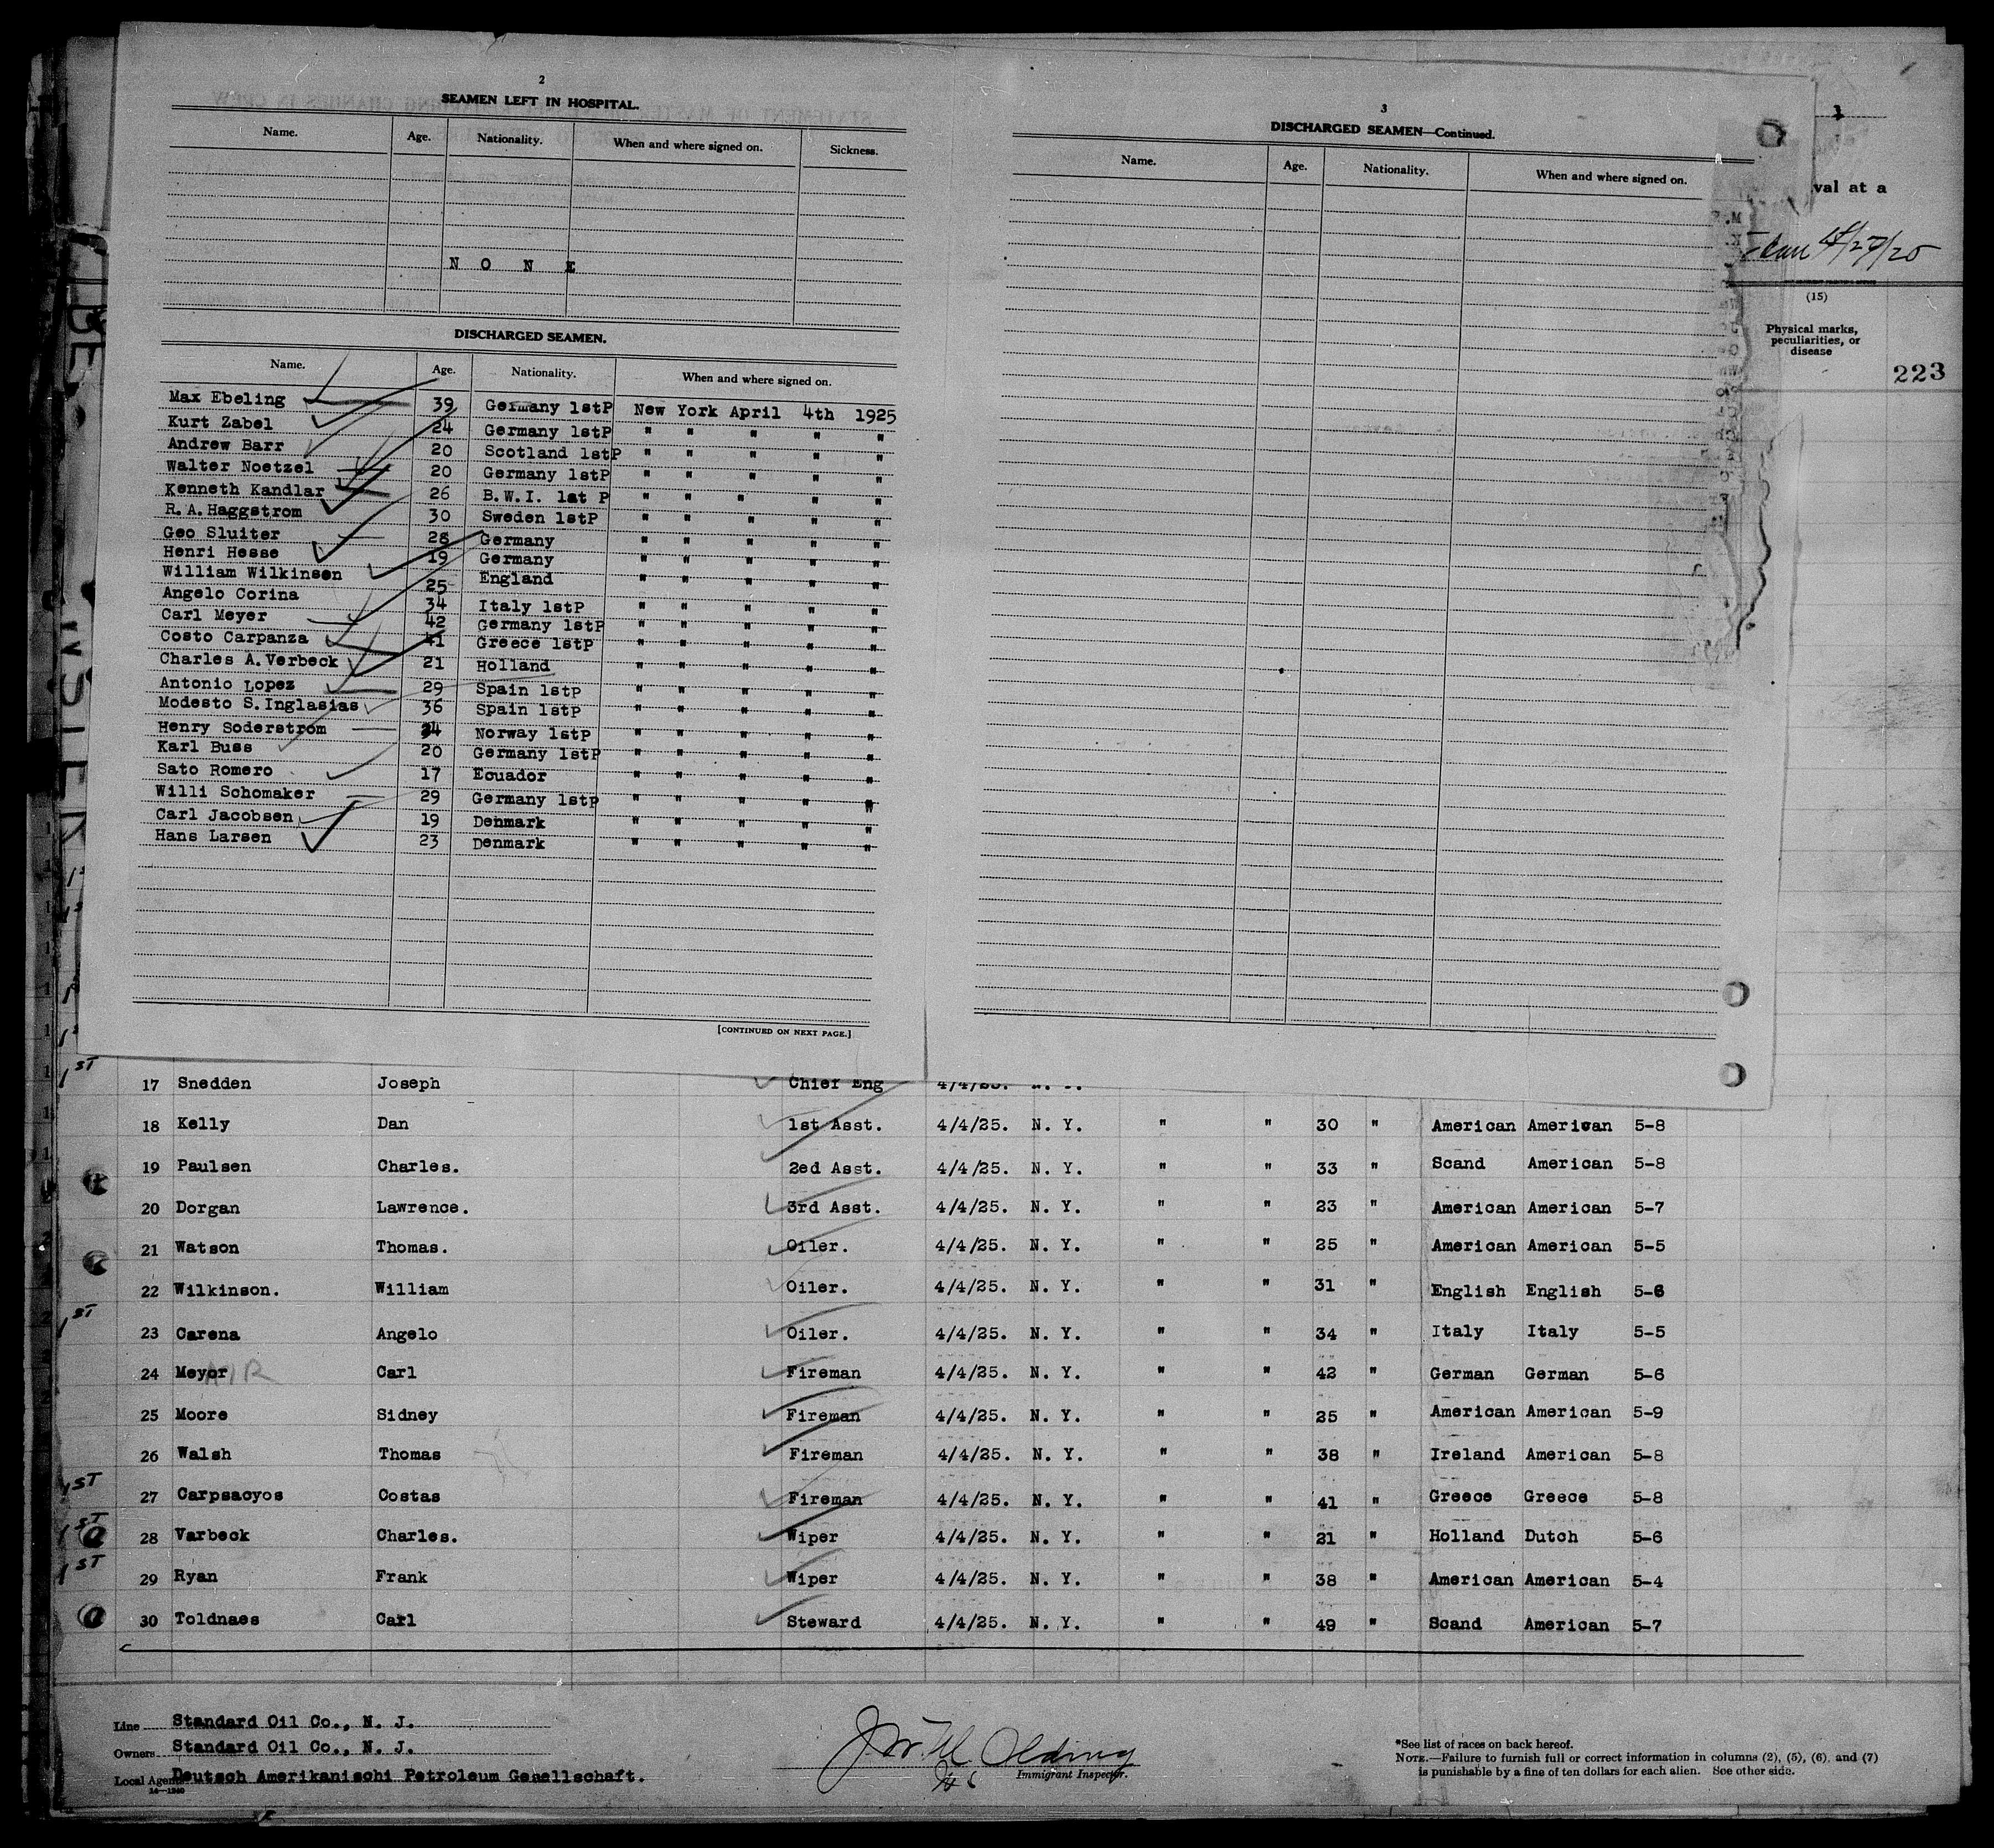 2
SEAMEN LEFT IN HOSPITAL.
Name. Age. Nationality. When and where signed on. Sickness.
N O N E
DISCHARGED SEAMEN.
Name. Age. Nationality. When and where signed on.
Max Ebeling 39 Germany 1stP New York April 4th 1925
Kurt Zabel 24 Germany 1stP " " " " "
Andrew Barr 20 Scotland 1stP " " " " "
Walter Noetzel 20 Germany 1stP " " " " "
Kenneth Kandlar 26 B.W.I. 1st P " " " " "
R.A.Haggstrom 30 Sweden 1stP " " " " "
Geo Sluiter 28 Germany " " " " "
Henri Hesse 19 Germany " " " " "
William Wilkinson 25 England " " " " "
Angelo Corina 34 Italy 1stP " " " " "
Carl Meyer 42 Germany 1stP " " " " "
Costo Carpanza 41 Greece 1stP " " " " "
Charles A.Verbeck 21 Holland " " " " "
Antonio Lopez 29 Spain 1stP " " " " "
Modesto S.Inglasias 36 Spain 1stP " " " " "
Henry Soderstrom 34 Norway 1stP " " " " "
Karl Buss 20 Germany 1stP " " " " "
Sato Romero 17 Ecuador " " " " "
Willi Schomaker 29 Germany 1stP " " " " "
Carl Jacobsen 19 Denmark " " " " "
Hans Larsen 23 Denmark " " " " "
[CONTINUED ON NEXT PAGE.]
3
DISCHARGED SEAMEN—Continued.
Name. Age. Nationality. When and where signed on.
val at a
(15)
Physical marks, peculiarities, or disease
223
1ST
17 Snedden Joseph Chief Eng 4/4/25. N. Y.
18 Kelly Dan 1st Asst. 4/4/25. N. Y. " " 30 " American American 5-8
19 Paulsen Charles. 2ed Asst. 4/4/25. N. Y. " " 33 " Scand American 5-8
20 Dorgan Lawrence. 3rd Asst. 4/4/25. N. Y. " " 23 " American American 5-7
21 Watson Thomas. Oiler. 4/4/25. N. Y. " " 25 " American American 5-5
22 Wilkinson. William Oiler. 4/4/25. N. Y. " " 31 " English English 5-6
1ST 23 Carena Angelo Oiler. 4/4/25. N. Y. " " 34 " Italy Italy 5-5
24 Meyor Carl Fireman 4/4/25. N. Y. " " 42 " German German 5-6
25 Moore Sidney Fireman 4/4/25. N. Y. " " 25 " American American 5-9
26 Walsh Thomas Fireman 4/4/25. N. Y. " " 38 " Ireland American 5-8
1ST 27 Carpsacyos Costas Fireman 4/4/25. N. Y. " " 41 " Greece Greece 5-8
1ST 28 Varbeck Charles. Wiper 4/4/25. N. Y. " " 21 " Holland Dutch 5-6
1ST 29 Ryan Frank Wiper 4/4/25. N. Y. " " 38 " American American 5-4
30 Toldnaes Carl Steward 4/4/25. N. Y. " " 49 " Scand American 5-7
Line Standard Oil Co., N. J.
Owners Standard Oil Co., N. J.
Local Agents Deutsch Amerikanischi Petroleum Gesellschaft.
Immigrant Inspector.
*See list of races on back hereof.
NOTE.—Failure to furnish full or correct information in columns (2), (5), (6), and (7)
is punishable by a fine of ten dollars for each alien. See other side.